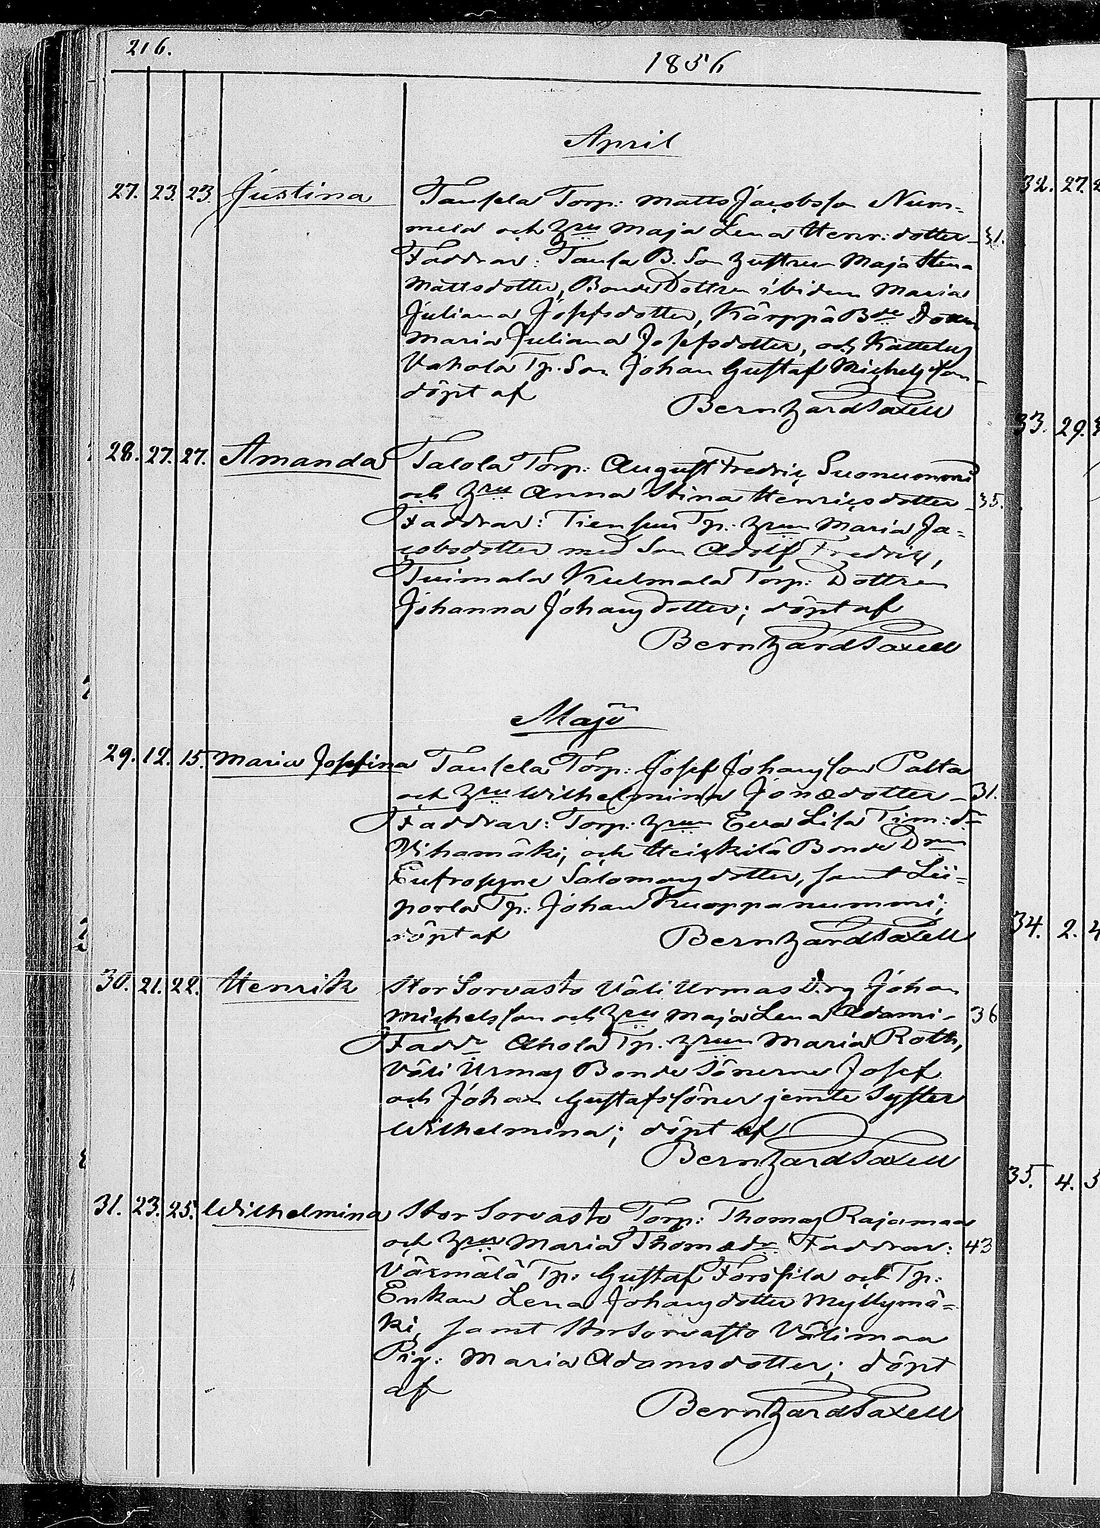 216.
1856
April
27. 23. 23. Justina Tausela Torp: Matts Jacobsson Num-
mela och Hru Maja Lena Henr: dotter 31.
Faddrar: Tausa B. Son Hustrun Maja Stina
Mattsdotter, Bonde Dottren ibidem Maria
Juliana Josefsdotter, Kärppä Bde Dottren
Maria Juliana Josefsdotter, och Kattelus
Vahola Tp. Son Johan Gustaf Michelsson
döpt af
Bernhard Saxell
28. 27. 27. Amanda Talola Torp: August Fredric Suonummi
och Hru Anna Stina Henricsdotter 35.
Faddrar: Tiensuu Tp. Hrun Maria Ja-
cobsdotter med Son Adolf Fredric,
Tuimala Kulmala Torp: Dottren
Johanna Johansdotter; döpt af
Bernhard Saxell
Maji
29. 12. 15. Maria Josefina Tausela Torp: Josef Johansson Palta
och Hru Wilhelmina Jonædotter 31.
Faddrar: Torp: Hrun Eva Lisa Tim: dr
Vihamäki, och Heickilä Bonde Drn
Eufrosyne Salomonsdotter, samt Lii-
pola Tp. Johan Kuoppanummi;
döpt af Bernhard Saxell
30. 21. 22. Henrik Stor Sorvasto Väli Urmas Drg Johan
Michelsson och Hru Maja Lena Adami- 36
Faddr Ahola Tp. Hrun Maria Roth,
Väli Urmas Bonde Sönerne Josef
och Johan Gustafssöner jemte Syster
Wilhelmina; döpt af
Bernhard Saxell
31. 23. 25. Wilhelmina Stor Sorvasto Torp: Thomas Rajamaa
och Hru Maria Thomædr. Faddrar: 43
Värmälä Tp: Gustaf Forsfila och Tp:
Enkan Lena Johansdotter Myllymä-
ki, samt Stor Sorvasto Välimaa
Pig: Maria Adamsdotter; döpt
af
Bernhard Saxell
32. 27.
33. 29.
34. 2. 4
35. 4. 5